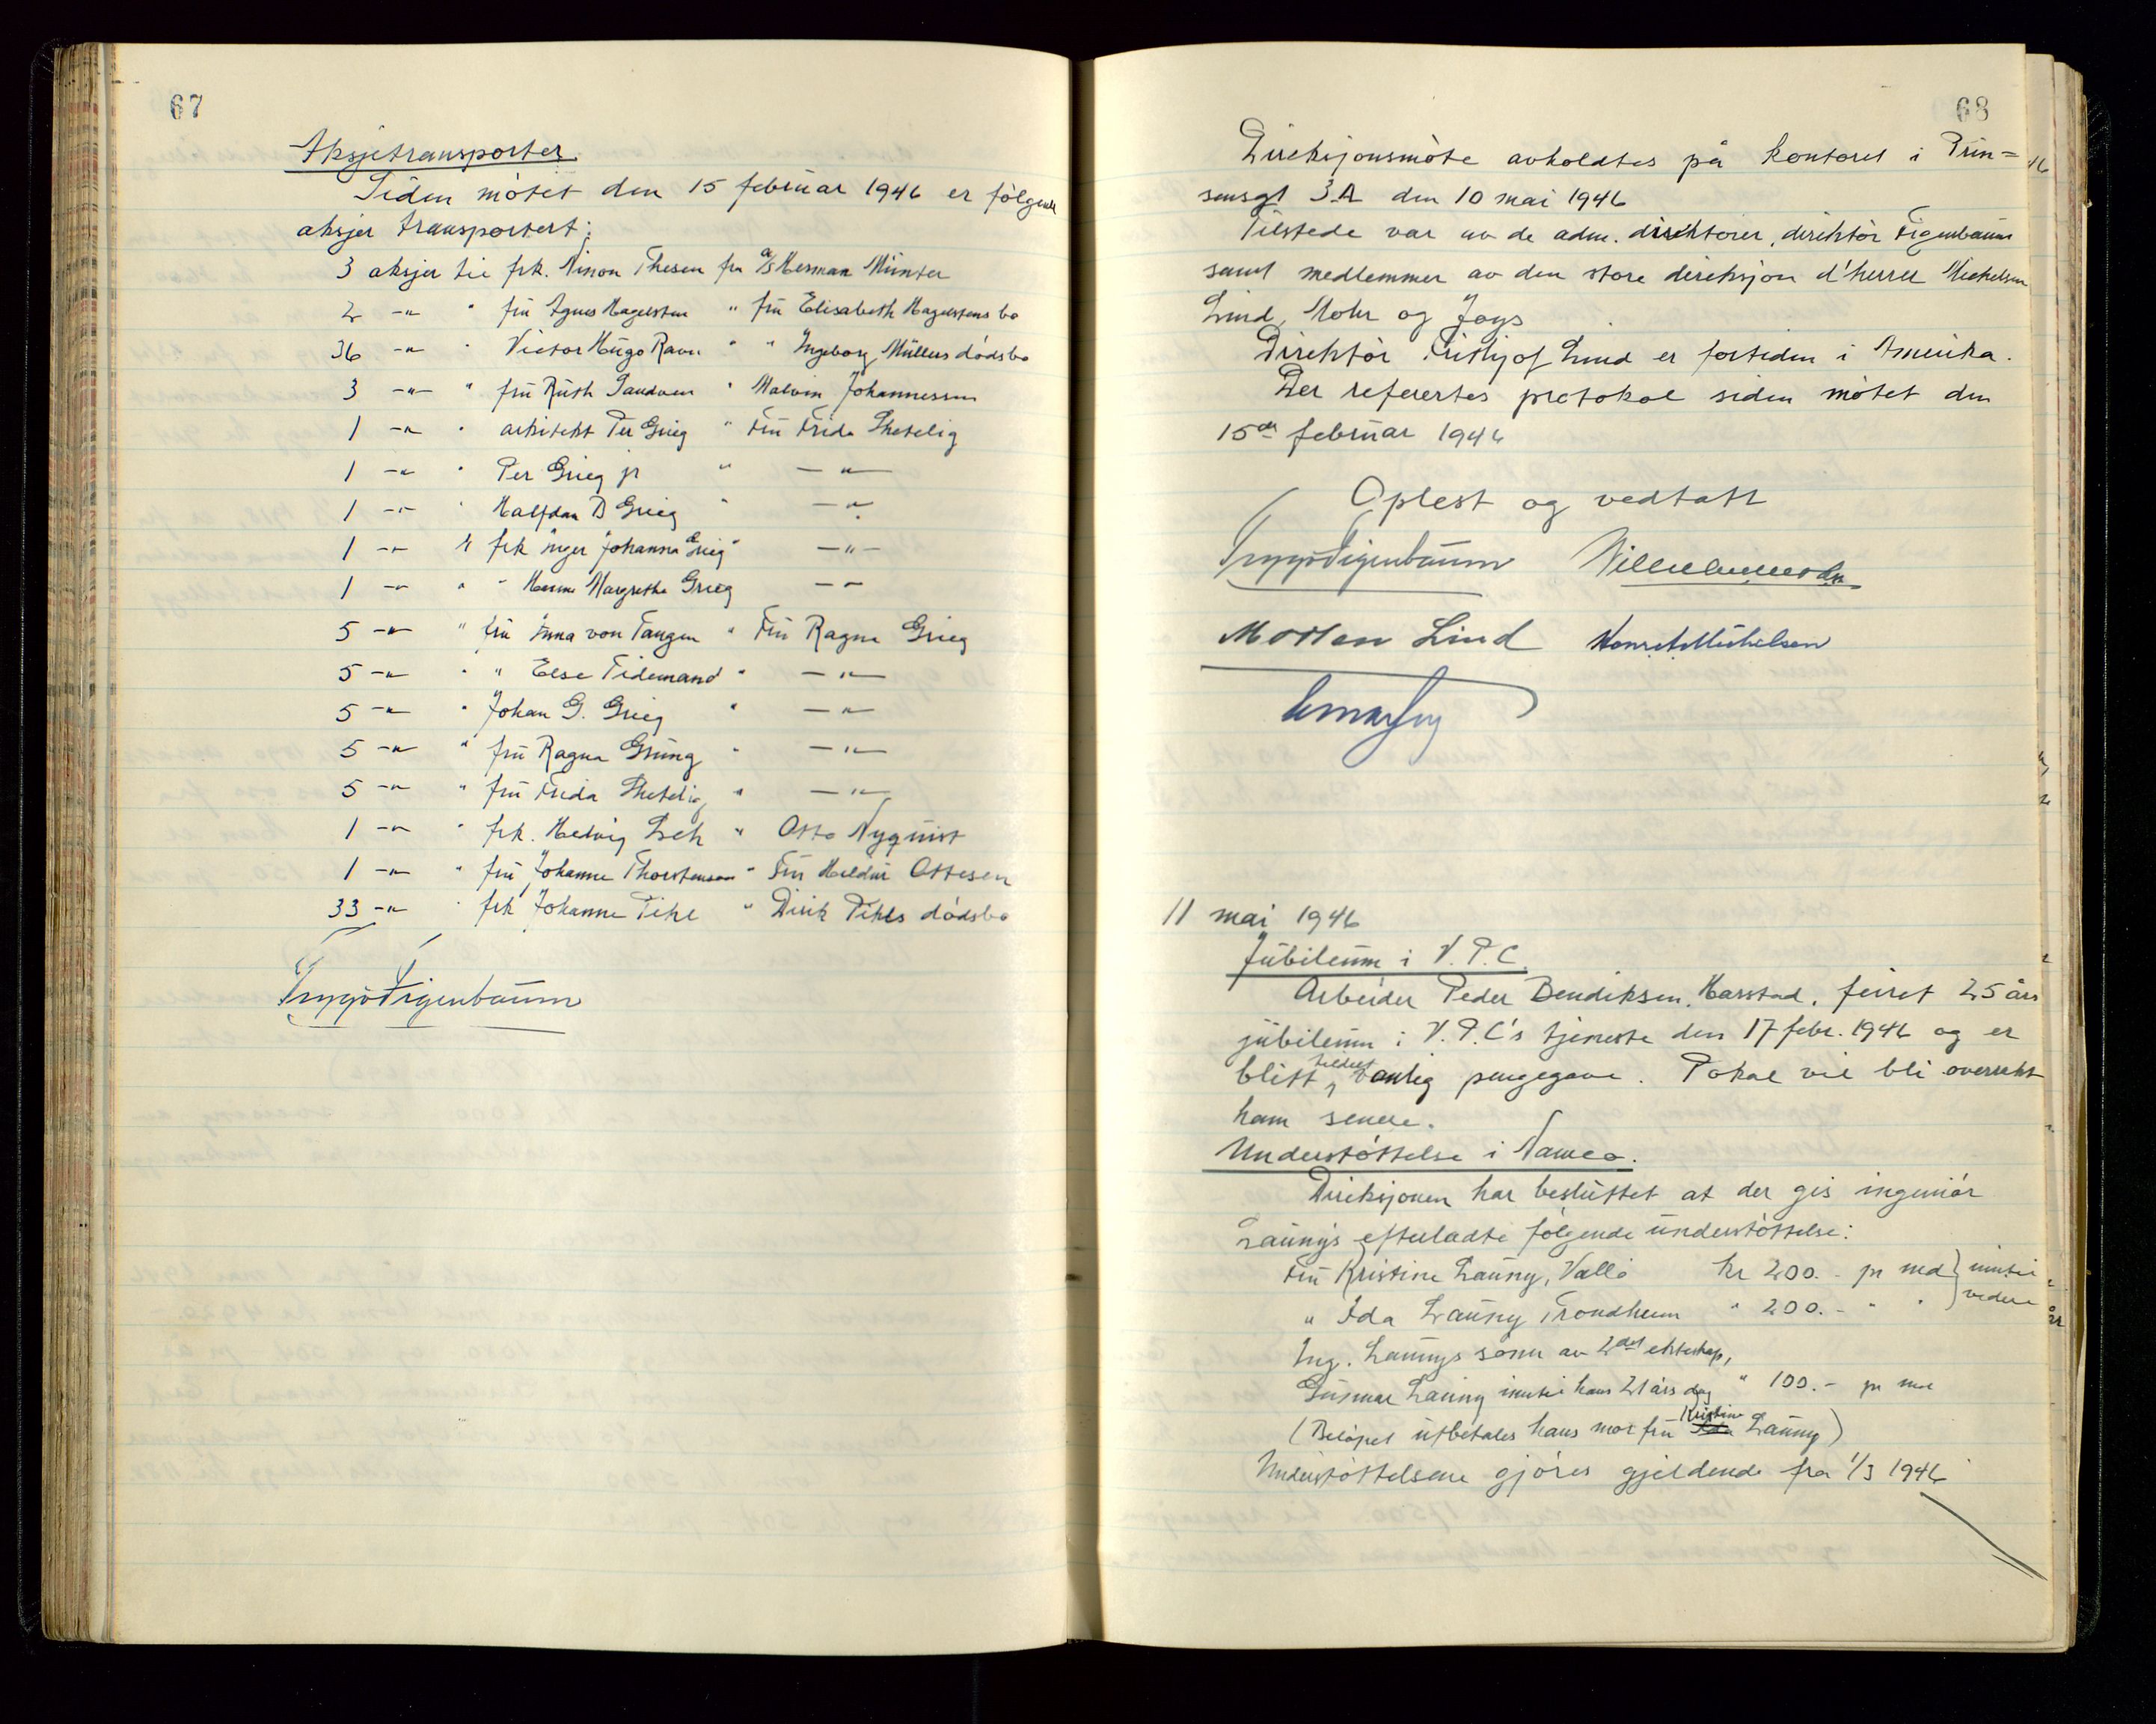 67
Aksjetransporter.
Siden møtet den 15 februar 1946 er følgende
aksjer transportert:
3 aksjer til frk. Ninon Thesen fra A/S Herman Münter
2 -"- " fru Agnes Hagelsten " fru Elisabeth Hagelstens bo
36 -"- " Victor Hugo Ravn " " Ingeborg Müllers dödsbo
3 -"- " fru Ruth Sandven " Malvin Johannessen
1 -"- " arkitekt Per Grieg " Fru Frida Shetelig
1 -"- " Per Grieg jr " -"-
1 -"- " Halfdan B Grieg " -"-
1 -"- " frk Inger Johanne Grieg " -"-
1 -"- " " Margrethe Grieg -"-
5 -"- " fru Anna von Tangen " Fru Ragna Grieg
5 -"- " " Else Tidemand " -"-
5 -"- " Johan G. Grieg " -"-
5 -"- " fru Ragna Grung " -"-
5 -"- " fru Frida Shetelig " -"-
1 -"- " frk. Hedvig Leh " Otto Nyquist
1 -"- " fru Johanne Thorstensen " Fru Ottesen
33 -"- " frk Johanne Pihl " Didrik Pihls dödsbo
Tryggö Figenbaum
68
Direksjonsmöte avholdtes på kontoret i Prin=
sensgt 3A den 10 mai 1946
Tilstede var av de adm. direktörer, direktör Figenbaum
samt medlemmer av den store direksjon d'herrer Michelsen
Lind, Mohr og Joys
Direktör Fridtjof Lind er fortiden i Amerika.
Der refertes protokol siden mötet den
15de februar 1946
Oplest og vedtatt
Tryggö Figenbaum Wilhelm Mohr
Morten Lind Konsul Michelsen
11 mai 1946
Jubileum i V.P.C.
Arbeider Peder Bendiksen, Harstad, feiret 25 års
jubileum i V.P.C's tjeneste den 17 febr. 1946 og er
blitt tildelt vanlig pengegave. Pokal vil bli overrakt
ham senere.
Understöttelse i Nameo.
Direksjonen har besluttet at der gis ingeniör
Launys efterladte fölgende understöttelse:
Fru Kristine Launy, Vallö kr 200.- pr md } inntil
" Ida Launy Trondheim " 200.- " " } videre
Ing. Launys sønn av 2det ekteskap,
Launy inntil hans 21 års dag " 100.- pr md
(Belöpet utbetales hans mor fru Kristine Launy)
Understöttelsene gjöres gjeldende fra 1/3 1946